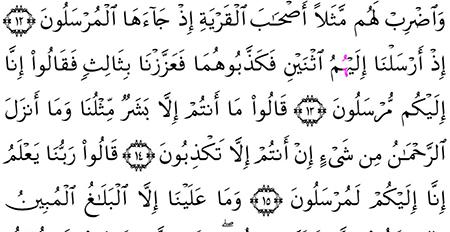 وَٱضْرِبْ لَهُم مَّثَلًا أَصْحَـٰبَ ٱلْقَرْيَةِ إِذْ جَآءَهَا ٱلْمُرْسَلُونَ ﴿١٣﴾
إِذْ أَرْسَلْنَآ إِلَيْهِمُ ٱثْنَيْنِ فَكَذَّبُوهُمَا فَعَزَّزْنَا بِثَالِثٍ فَقَالُوٓا۟ إِنَّآ
إِلَيْكُم مُّرْسَلُونَ ﴿١٣﴾ قَالُوا۟ مَآ أَنتُمْ إِلَّا بَشَرٌ مِّثْلُنَا وَمَآ أَنزَلَ
ٱلرَّحْمَـٰنُ مِن شَىْءٍ إِنْ أَنتُمْ إِلَّا تَكْذِبُونَ ﴿١٤﴾ قَالُوا۟ رَبُّنَا يَعْلَمُ
إِنَّآ إِلَيْكُمْ لَمُرْسَلُونَ ﴿١٥﴾ وَمَا عَلَيْنَآ إِلَّا ٱلْبَلَـٰغُ ٱلْمُبِينُ